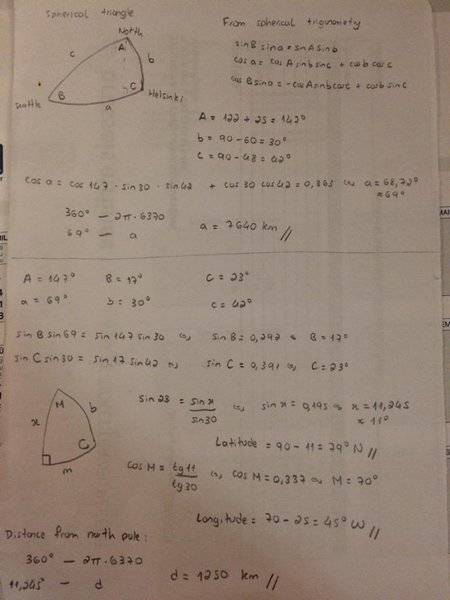 Spherical triangle
From spherical trigonometry
North
A
c
b
B
C
a
Seattle
Helsinki
sinB sina = sinA sinb
cosa = cosA sinb sinc + cosb cosc
cosB sina = -cosA sinb cosc + cosb sinc
A = 122 + 25 = 147°
b = 90 - 60 = 30°
c = 90 - 48 = 42°
cos a = cos 147 · sin 30 · sin 42 + cos 30 cos 42 = 0,363 ∾ a = 68,72°
≈ 69°
360° — 2π · 6370
69° — a
a = 7640 km //
A = 147° B = 17° C = 23°
a = 69° b = 30° c = 42°
sin B sin 69 = sin 147 sin 30 ∾ sin B = 0,292 ∾ B = 17°
sin C sin 30 = sin 17 sin 42 ∾ sin C = 0,391 ∾ C = 23°
M
x
b
C
m
sin 23 = sin x / sin 30 ∾ sin x = 0,195 ∾ x = 11,245
≈ 11°
Latitude = 90 - 11 = 79° N //
cos M = tg 11 / tg 30 ∾ cos M = 0,337 ∾ M = 70°
Longitude = 70 - 25 = 45° W //
Distance from north pole:
360° — 2π · 6370
11,245° — d
d = 1250 km //